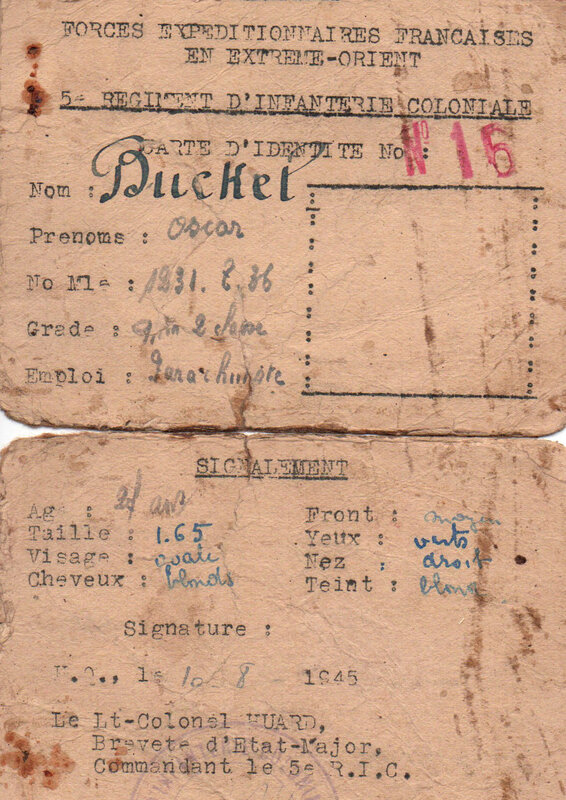 FORCES EXPEDITIONNAIRES FRANCAISES
EN EXTREME-ORIENT
5e REGIMENT D'INFANTERIE COLONIALE
CARTE D'IDENTITE No : N° 16
Nom : Ducket
Prenoms : Oscar
No Mle : 1231. 7. 36
Grade : 2
Emploi : Parachutiste
SIGNALEMENT
Age : ans
Taille : 1.65
Visage : ovale
Cheveux : blonds
Front : moyen
Yeux : verts
Nez : droit
Teint :
Signature :
le 10 8 1945
Le Lt-Colonel HUARD,
Brevete d'Etat-Major,
Commandant le 5e R.I.C.